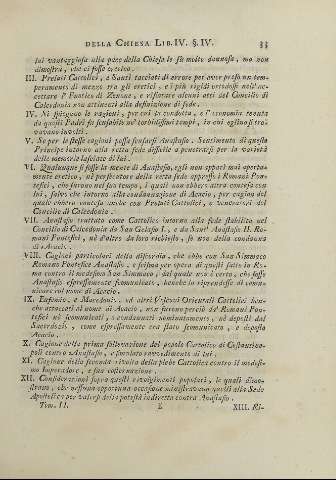 DELLA CHIESA LIB. IV. §. IV. 33
lui vantaggiosa alla pace della Chiesa le fu molto dannosa, ma non
dimostra, che ei fosse eretico.
III. Prelati Cattolici, e Santi tacciati di errore per aver preso un tem-
peramento di mezzo tra gli eretici, e i più rigidi ortodossi nell' ac-
cettare l' Enotico di Zenone, e rifiutare alcuni atti del Concilio di
Calcedonia non attinenti alla definizione di fede.
IV. Si spiegano le ragioni, per cui la condotta, e l' economia tenuta
da questi Padri fu scusabile ne' torbidissimi tempi, in cui eglino si tro-
vavano involti.
V. Se per le stesse ragioni possa scusarsi Anastasio. Sentimento di questo
Principe intorno alla retta fede difficile a penetrarsi per la varietà
delle memorie lasciate di lui.
VI. Qualunque si fosse la mente di Anastasio, egli non apparì mai aperta-
mente eretico, nè persecutore della retta fede appresso i Romani Pon-
tefici, che furono nel suo tempo, i quali non ebbero altra contesa con
lui, salvo che intorno alla condannazione di Acacio, per cagion del
quale ebbero contesa anche con Prelati Cattolici, e veneratori del
Concilio di Calcedonia.
VII. Anastasio trattato come Cattolico intorno alla fede stabilita nel
Concilio di Calcedonia da San Gelasio I., e da Sant' Anastasio II. Ro-
mani Pontefici, nè d'altro da loro richiesto, se non della condanna
di Acacio.
VIII. Cagioni particolari della discordia, che ebbe con San Simmaco
Romano Pontefice Anastasio, e scisma per opera di questi fatto in Ro-
ma contro il medesimo San Simmaco, dal quale non è certo, che fosse
Anastasio espressamente scomunicato, benchè lo riprendesse di comu-
nicare col nome di Acacio.
IX. Eufemio, e Macedonio, ed altri Vescovi Orientali Cattolici ben-
chè attaccati al nome di Acacio, non furono perciò da' Romani Pon-
tefici nè scomunicati, o condannati nominatamente, nè deposti dal
Sacerdozio, come espressamente era stato scomunicato, e deposto
Acacio.
X. Cagione della prima sollevazione del popolo Cattolico di Costantino-
poli contro Anastasio, e simulato ravvedimento di lui.
XI. Cagione della seconda rivolta della plebe Cattolica contro il medesi-
mo Imperadore, e sua costernazione.
XII. Considerazioni sopra questi rivolgimenti popolari, le quali dimo-
strano, che nessuna opportuna occasione ministravano questi alla Sede
Apostolica per valersi della potestà indiretta contro Anastasio.
Tom. II. L XIII. Ri-